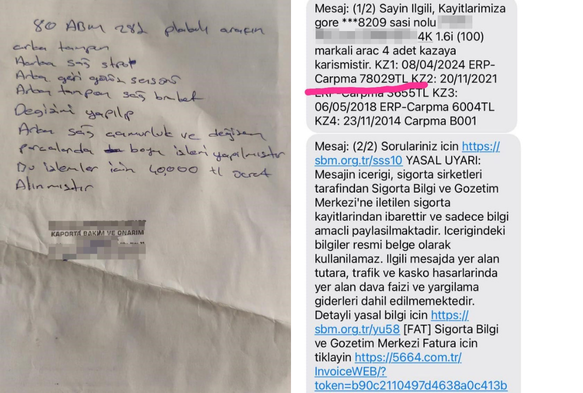 80 ABM 282 plakalı aracın
arka tampon
Arka sağ stop
Arka geri görüş sensörü
Arka tampon sağ braket
Değişimi yapılıp
Arka sağ çamurluk ve değişen
parçalarda boya işleri yapılmıştır
Bu işlemler için 40000 tl ücret
Alınmıştır
KAPORTA BAKIM VE ONARIM
Mesaj: (1/2) Sayin Ilgili, Kayitlarimiza
gore ***8209 sasi nolu
4K 1.6i (100)
markali arac 4 adet kazaya
karismistir. KZ1: 08/04/2024 ERP-
Carpma 78029TL KZ2: 20/11/2021
ERP-Carpma 3655TL KZ3:
06/05/2018 ERP-Carpma 6004TL
KZ4: 23/11/2014 Carpma B001
Mesaj: (2/2) Sorulariniz icin https://
sbm.org.tr/sss10 YASAL UYARI:
Mesajin icerigi, sigorta sirketleri
tarafindan Sigorta Bilgi ve Gozetim
Merkezi'ne iletilen sigorta
kayitlarindan ibarettir ve sadece bilgi
amacli paylasilmaktadir. Icerigindeki
bilgiler resmi belge olarak
kullanilamaz. Ilgili mesajda yer alan
tutara, trafik ve kasko hasarlarinda
yer alan dava faizi ve yargilama
giderleri dahil edilmemektedir.
Detayli yasal bilgi icin https://
sbm.org.tr/yu58 [FAT] Sigorta Bilgi
ve Gozetim Merkezi Fatura icin
tiklayin https://5664.com.tr/
InvoiceWEB/?
token=b90c2110497d4638a0c413b